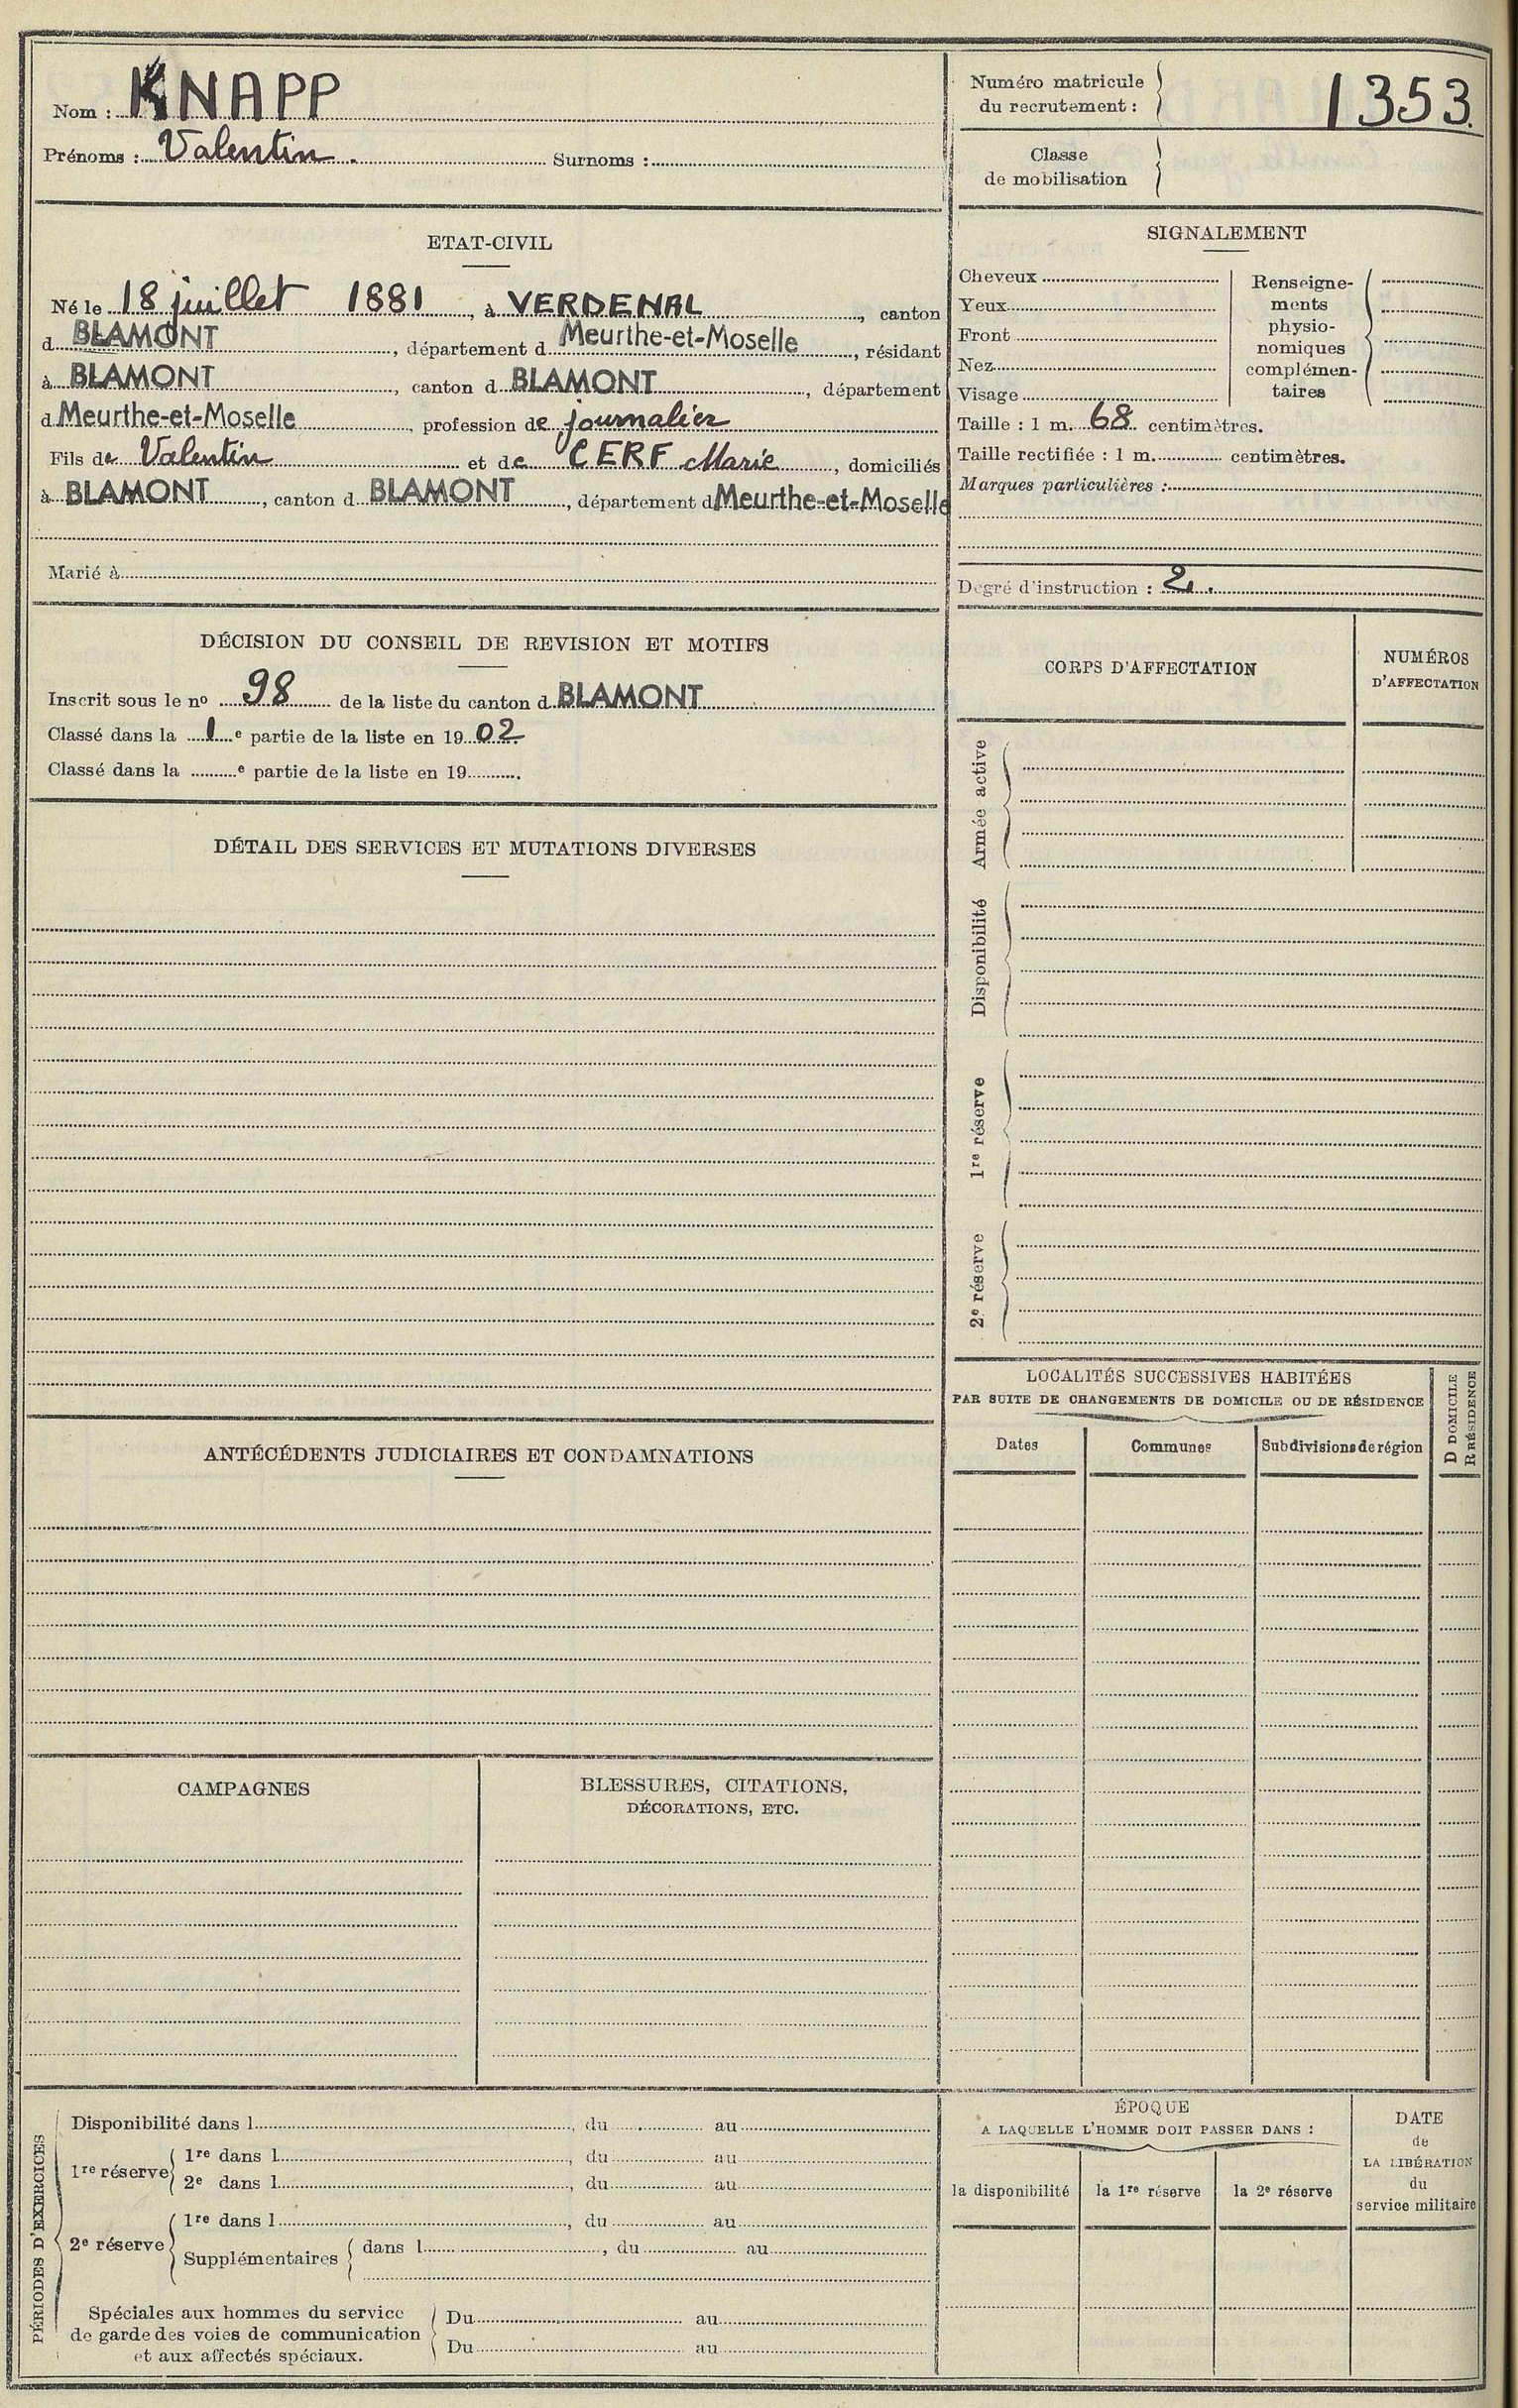 Nom : KNAPP
Prénoms : Valentin. Surnoms :
Numéro matricule du recrutement : 1353.
Classe de mobilisation
ETAT-CIVIL
Né le 18 juillet 1881, à VERDENAL, canton
d BLAMONT, département d Meurthe-et-Moselle, résidant
à BLAMONT, canton d BLAMONT, département
d Meurthe-et-Moselle, profession de journalier
Fils de Valentin et de CERF Marie, domiciliés
à BLAMONT, canton d BLAMONT, département d Meurthe-et-Moselle
Marié à
SIGNALEMENT
Cheveux
Yeux
Front
Nez
Visage
Renseigne-
ments
physio-
nomiques
complémen-
taires
Taille : 1 m. 68 centimètres.
Taille rectifiée : 1 m. centimètres.
Marques particulières :
Degré d'instruction : 2.
DÉCISION DU CONSEIL DE REVISION ET MOTIFS
Inscrit sous le no 98 de la liste du canton d BLAMONT
Classé dans la 1e partie de la liste en 1902.
Classé dans la e partie de la liste en 19 .
DÉTAIL DES SERVICES ET MUTATIONS DIVERSES
CORPS D'AFFECTATION
NUMÉROS
D'AFFECTATION
Armée active
Disponibilité
1re réserve
2e réserve
LOCALITÉS SUCCESSIVES HABITÉES
PAR SUITE DE CHANGEMENTS DE DOMICILE OU DE RÉSIDENCE
D DOMICILE
R RÉSIDENCE
Dates
Communes
Subdivisions de région
ANTÉCÉDENTS JUDICIAIRES ET CONDAMNATIONS
CAMPAGNES
BLESSURES, CITATIONS,
DÉCORATIONS, ETC.
PÉRIODES D'EXERCICES
Disponibilité dans l , du au
1re réserve
1re dans l , du au
2e dans l , du au
2e réserve
1re dans l , du au
Supplémentaires dans l , du au
Spéciales aux hommes du service
de garde des voies de communication
et aux affectés spéciaux.
Du au
Du au
ÉPOQUE
A LAQUELLE L'HOMME DOIT PASSER DANS :
la disponibilité
la 1re réserve
la 2e réserve
DATE
de
LA LIBÉRATION
du
service militaire